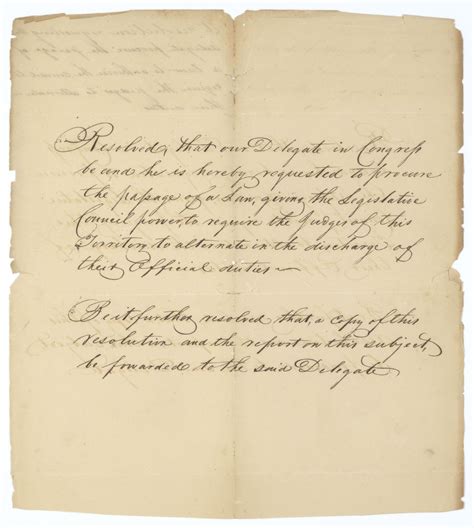 Resolved, that our Delegate in Congress
be and he is hereby requested to procure
the passage of a Law, giving the Legislative
Council power, to require the Judges of this
Territory to alternate in the discharge of
their Official duties~
Be it further resolved that, a copy of this
resolution and the report on this subject,
be forwarded to the said Delegate